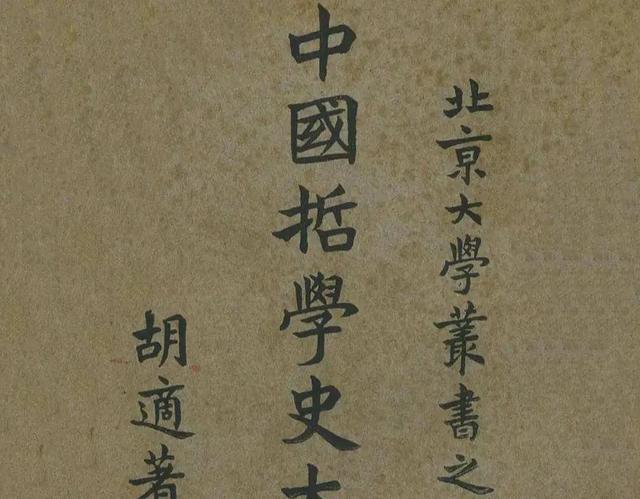 北京大學叢書之
中國哲學史大
胡適著